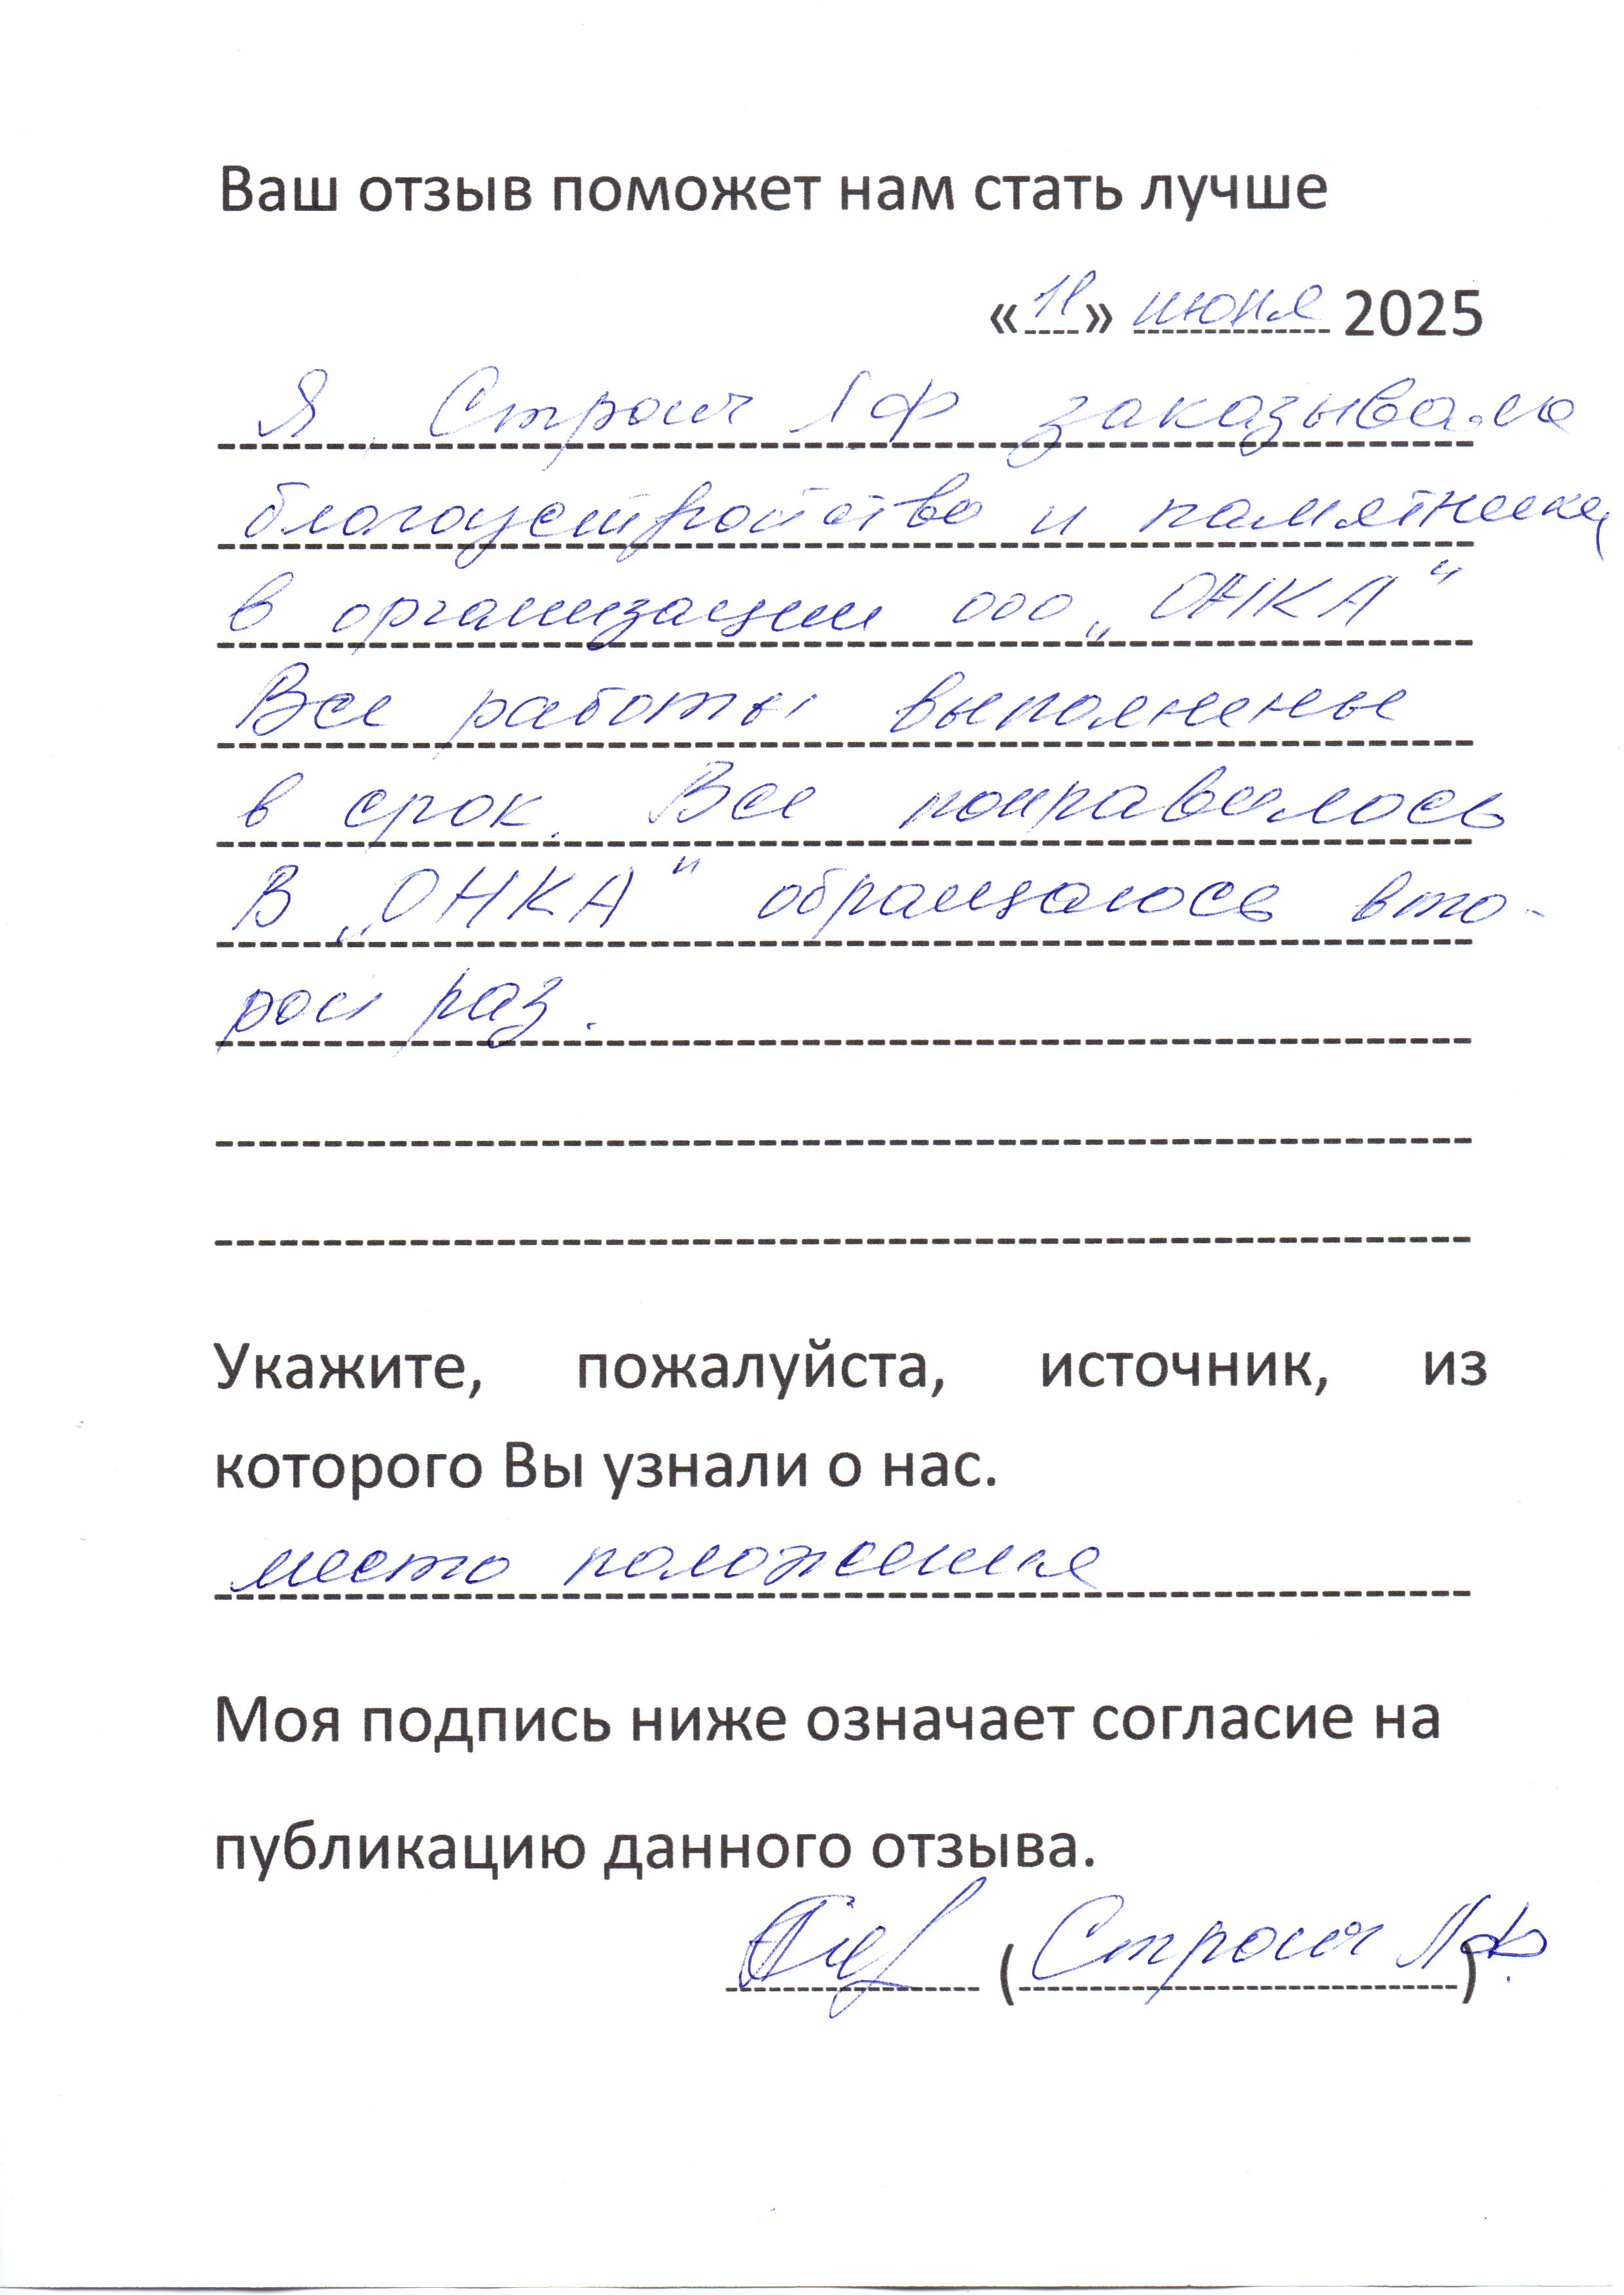 Ваш отзыв поможет нам стать лучше
«11» июня 2025
Я, Строич Л Ф заказывала
благоустройство и памятника
в организации ооо „ОНКА“
Все работы выполненые
в срок. Все понравилось
В „ОНКА“ обращаюсь вто-
рой раз.
Укажите, пожалуйста, источник, из
которого Вы узнали о нас.
место положения
Моя подпись ниже означает согласие на
публикацию данного отзыва.
(Строич Л.Ф.)